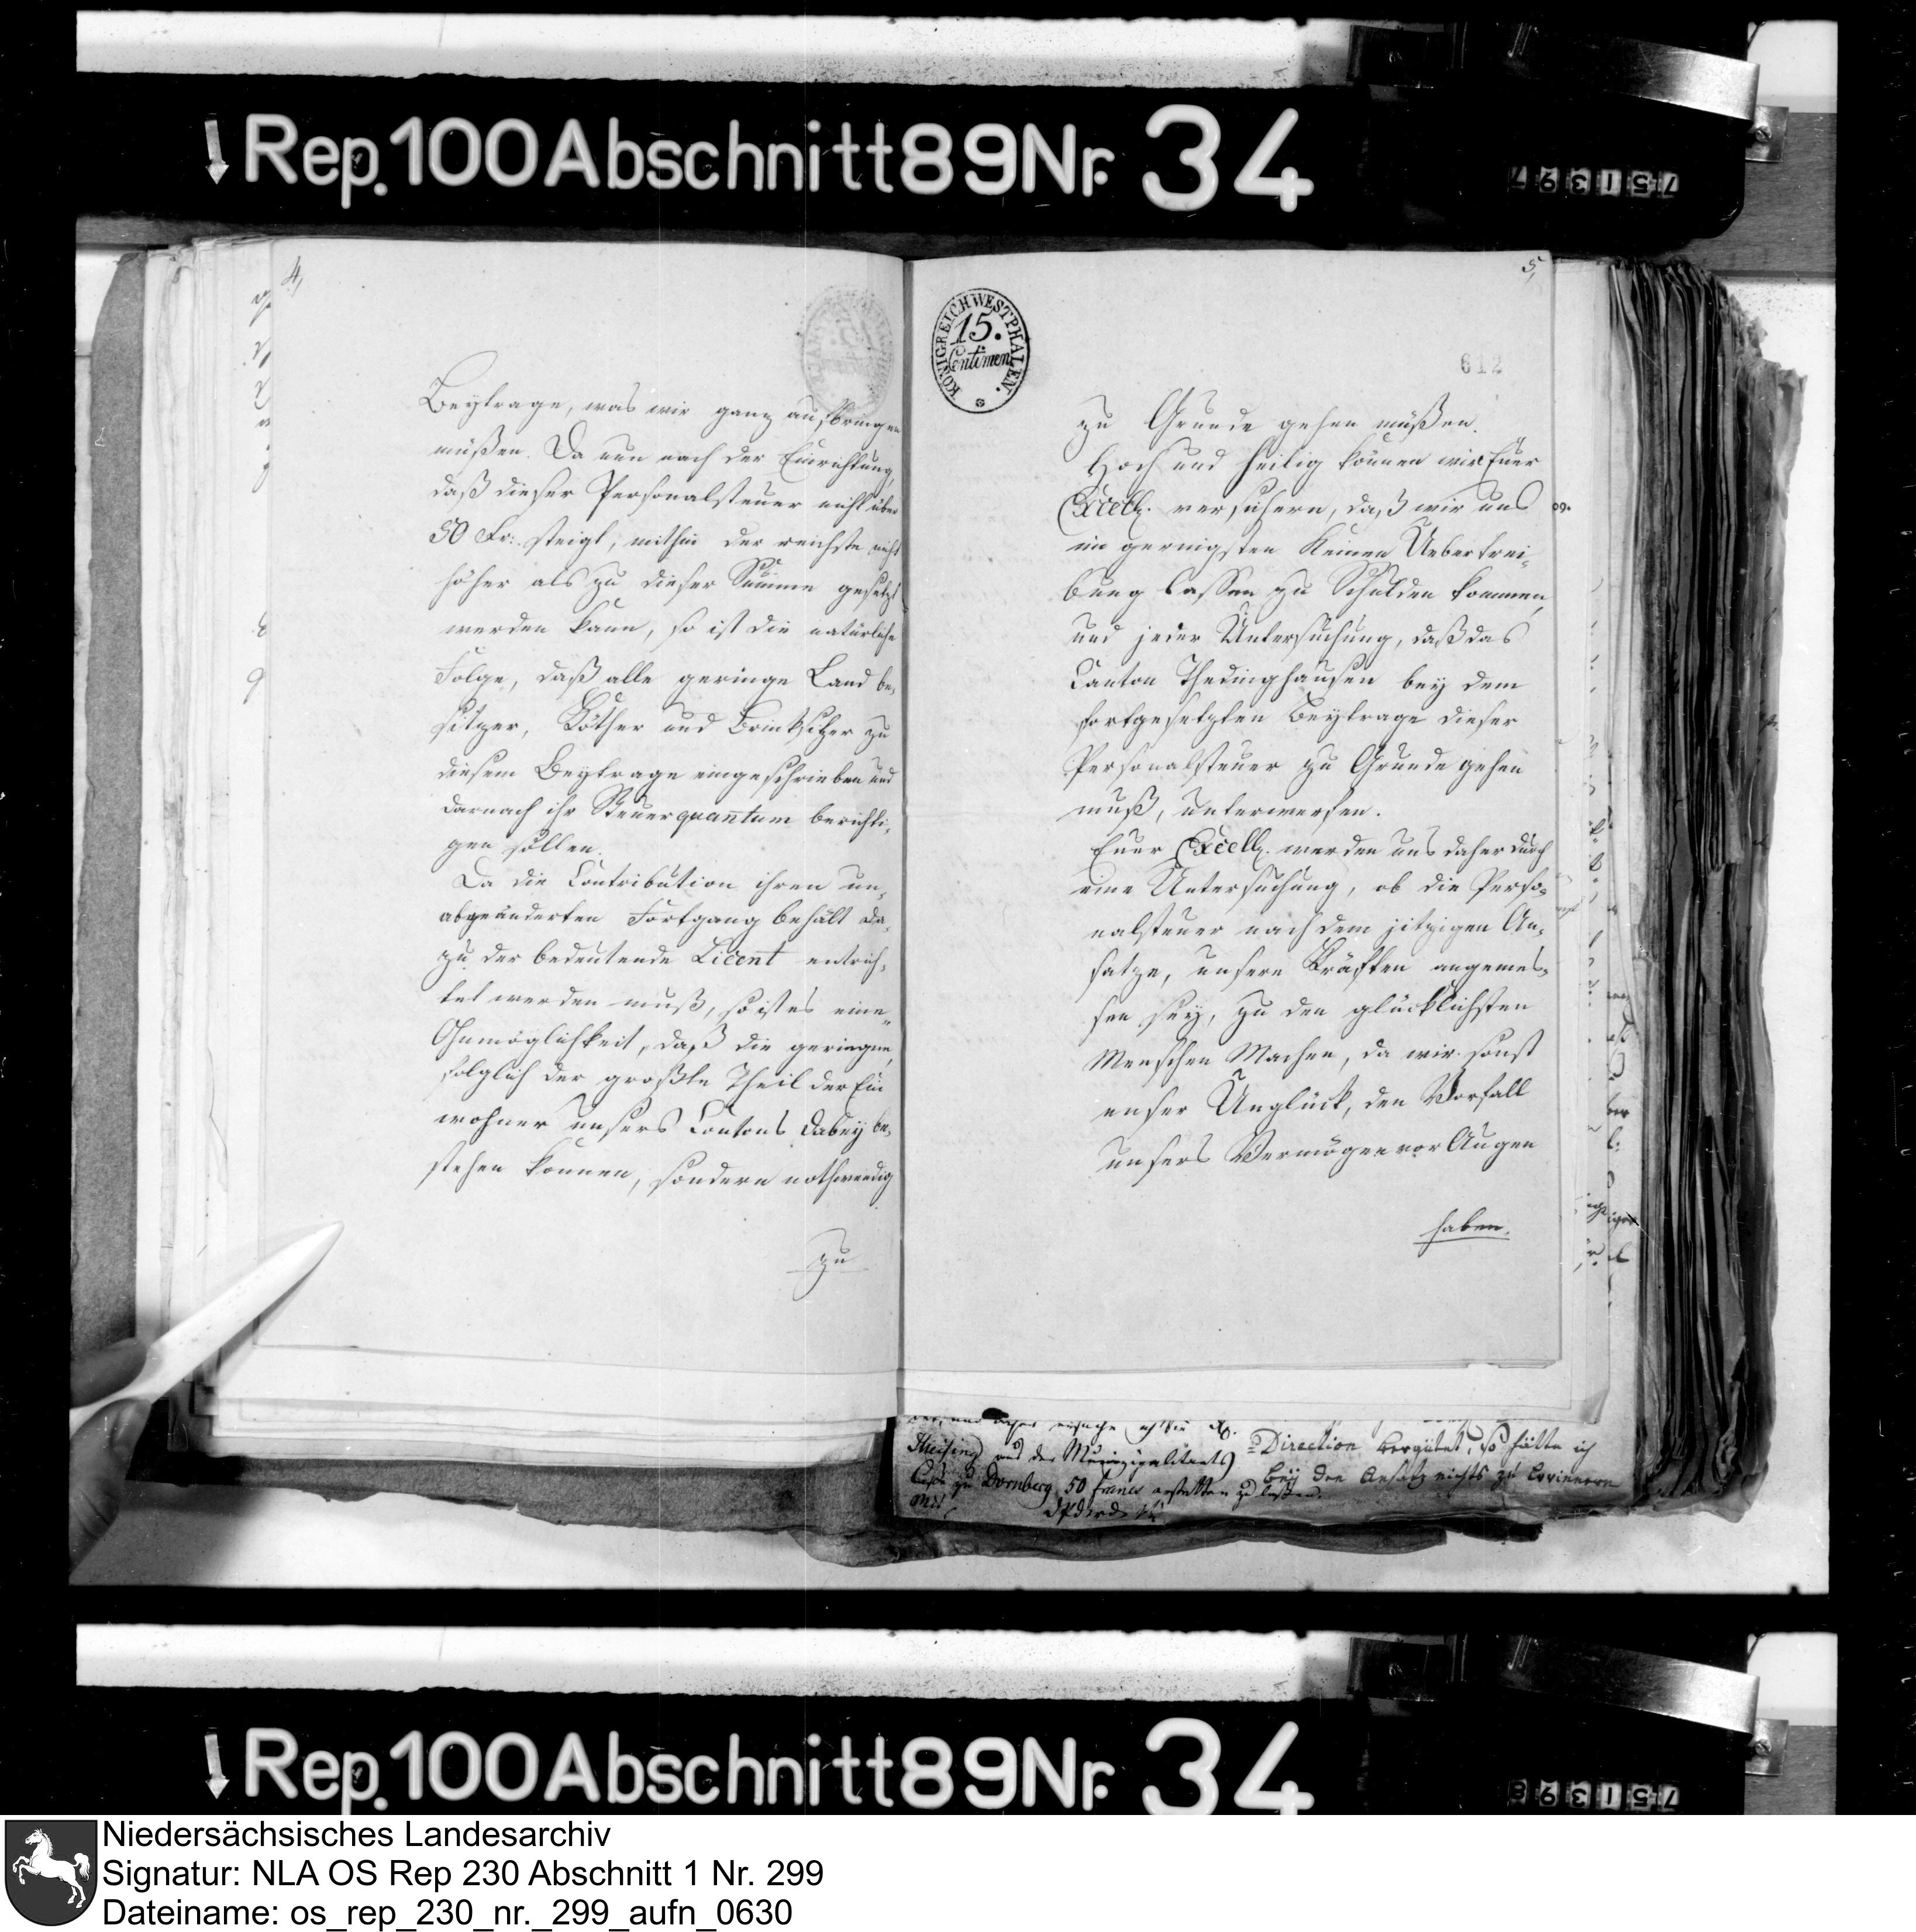 Rep. 100 Abschnitt 89 Nr. 34
751397
4,
Beytrage, was wir ganz aufbringen
müßen. Da nun nach der Einrichtung,
daß dieser Personalsteuer nicht über
50 Fr: steigt, mithin der reichste nicht
höher als zu dieser Summe gesetzt
werden kann, so ist die natürliche
Folge, daß alle geringe Land be-
sitzer, Köther und Brinksitzer zu
diesem Beytrage eingeschrieben und
darnach ihr Steuerquantum berichti-
gen sollen.
Da die Contribution ihren un-
abgeänderten Fortgang behält da-
zu der bedeutende Licent entrich-
tet werden muß, so ist es eine
Ohnmöglichkeit, daß die geringen,
folglich der großte Theil der Ein
wohner unsers Cantons dabey be-
stehen können, sondern nothwendig
zu
KÖNIGREICH WESTPHALEN.
15.
Centimen
5,
612
zu Grunde gehen müßen.
Hoch und heilig können wir Euer
Excell. versichern, daß wir uns
im geringsten keinen Uebertrei-
bung lassen zu Schulden kommen,
und jeder Untersuchung, daß das
Canton Thedinghausen bey dem
fortgesetzten Beytrage dieser
Personalsteuer zu Grunde gehen
muß, unterwerfen.
Euer Excell. werden uns daher durch
eine Untersuchung, ob die Perso-
nalsteuer nach dem jitzigen An-
satze, unsere Kräften angemes-
sen sey, zu den glücklichsten
Menschen Machen, da wir sonst
unser Unglück, den Vorfall
unsers Vermögen vor Augen
haben.
aus der Municipalitaets
Casse zu Dornberg 50 francs erstatten zu lassen.
Direction vergütet, so hätte ich
bey den Ansatz nichts zu erinnern
Rep. 100 Abschnitt 89 Nr. 34
751398
Niedersächsisches Landesarchiv
Signatur: NLA OS Rep 230 Abschnitt 1 Nr. 299
Dateiname: os_rep_230_nr._299_aufn_0630